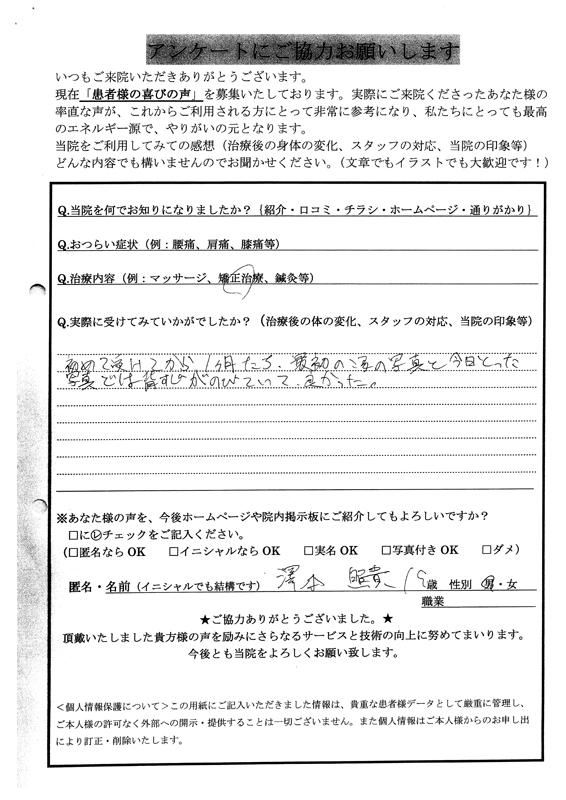 アンケートにご協力お願いします
いつもご来院いただきありがとうございます。
現在「患者様の喜びの声」を募集いたしております。実際にご来院くださったあなた様の
率直な声が、これからご利用される方にとって非常に参考になり、私たちにとっても最高
のエネルギー源で、やりがいの元となります。
当院をご利用してみての感想（治療後の身体の変化、スタッフの対応、当院の印象等）
どんな内容でも構いませんのでお聞かせください。（文章でもイラストでも大歓迎です！）
Q.当院を何でお知りになりましたか？｛紹介・口コミ・チラシ・ホームページ・通りがかり｝
Q.おつらい症状（例：腰痛、肩痛、膝痛等）
Q.治療内容（例：マッサージ、矯正治療、鍼灸等）
Q.実際に受けてみていかがでしたか？（治療後の体の変化、スタッフの対応、当院の印象等）
初めて受けてから、1ヶ月たち、最初のころの写真と今日とった
写真では背すじがのびていて、良かった。
※あなた様の声を、今後ホームページや院内掲示板にご紹介してもよろしいですか？
□に☑チェックをご記入ください。
（□匿名なら OK □イニシャルなら OK □実名 OK □写真付き OK □ダメ）
匿名・名前（イニシャルでも結構です） 澤本 照貴 歳 性別 男・女
職業
★ご協力ありがとうございました。★
頂戴いたしました貴方様の声を励みにさらなるサービスと技術の向上に努めてまいります。
今後とも当院をよろしくお願い致します。
＜個人情報保護について＞この用紙にご記入いただきました情報は、貴重な患者様データとして厳重に管理し、
ご本人様の許可なく外部への開示・提供することは一切ございません。また個人情報はご本人様からのお申し出
により訂正・削除いたします。